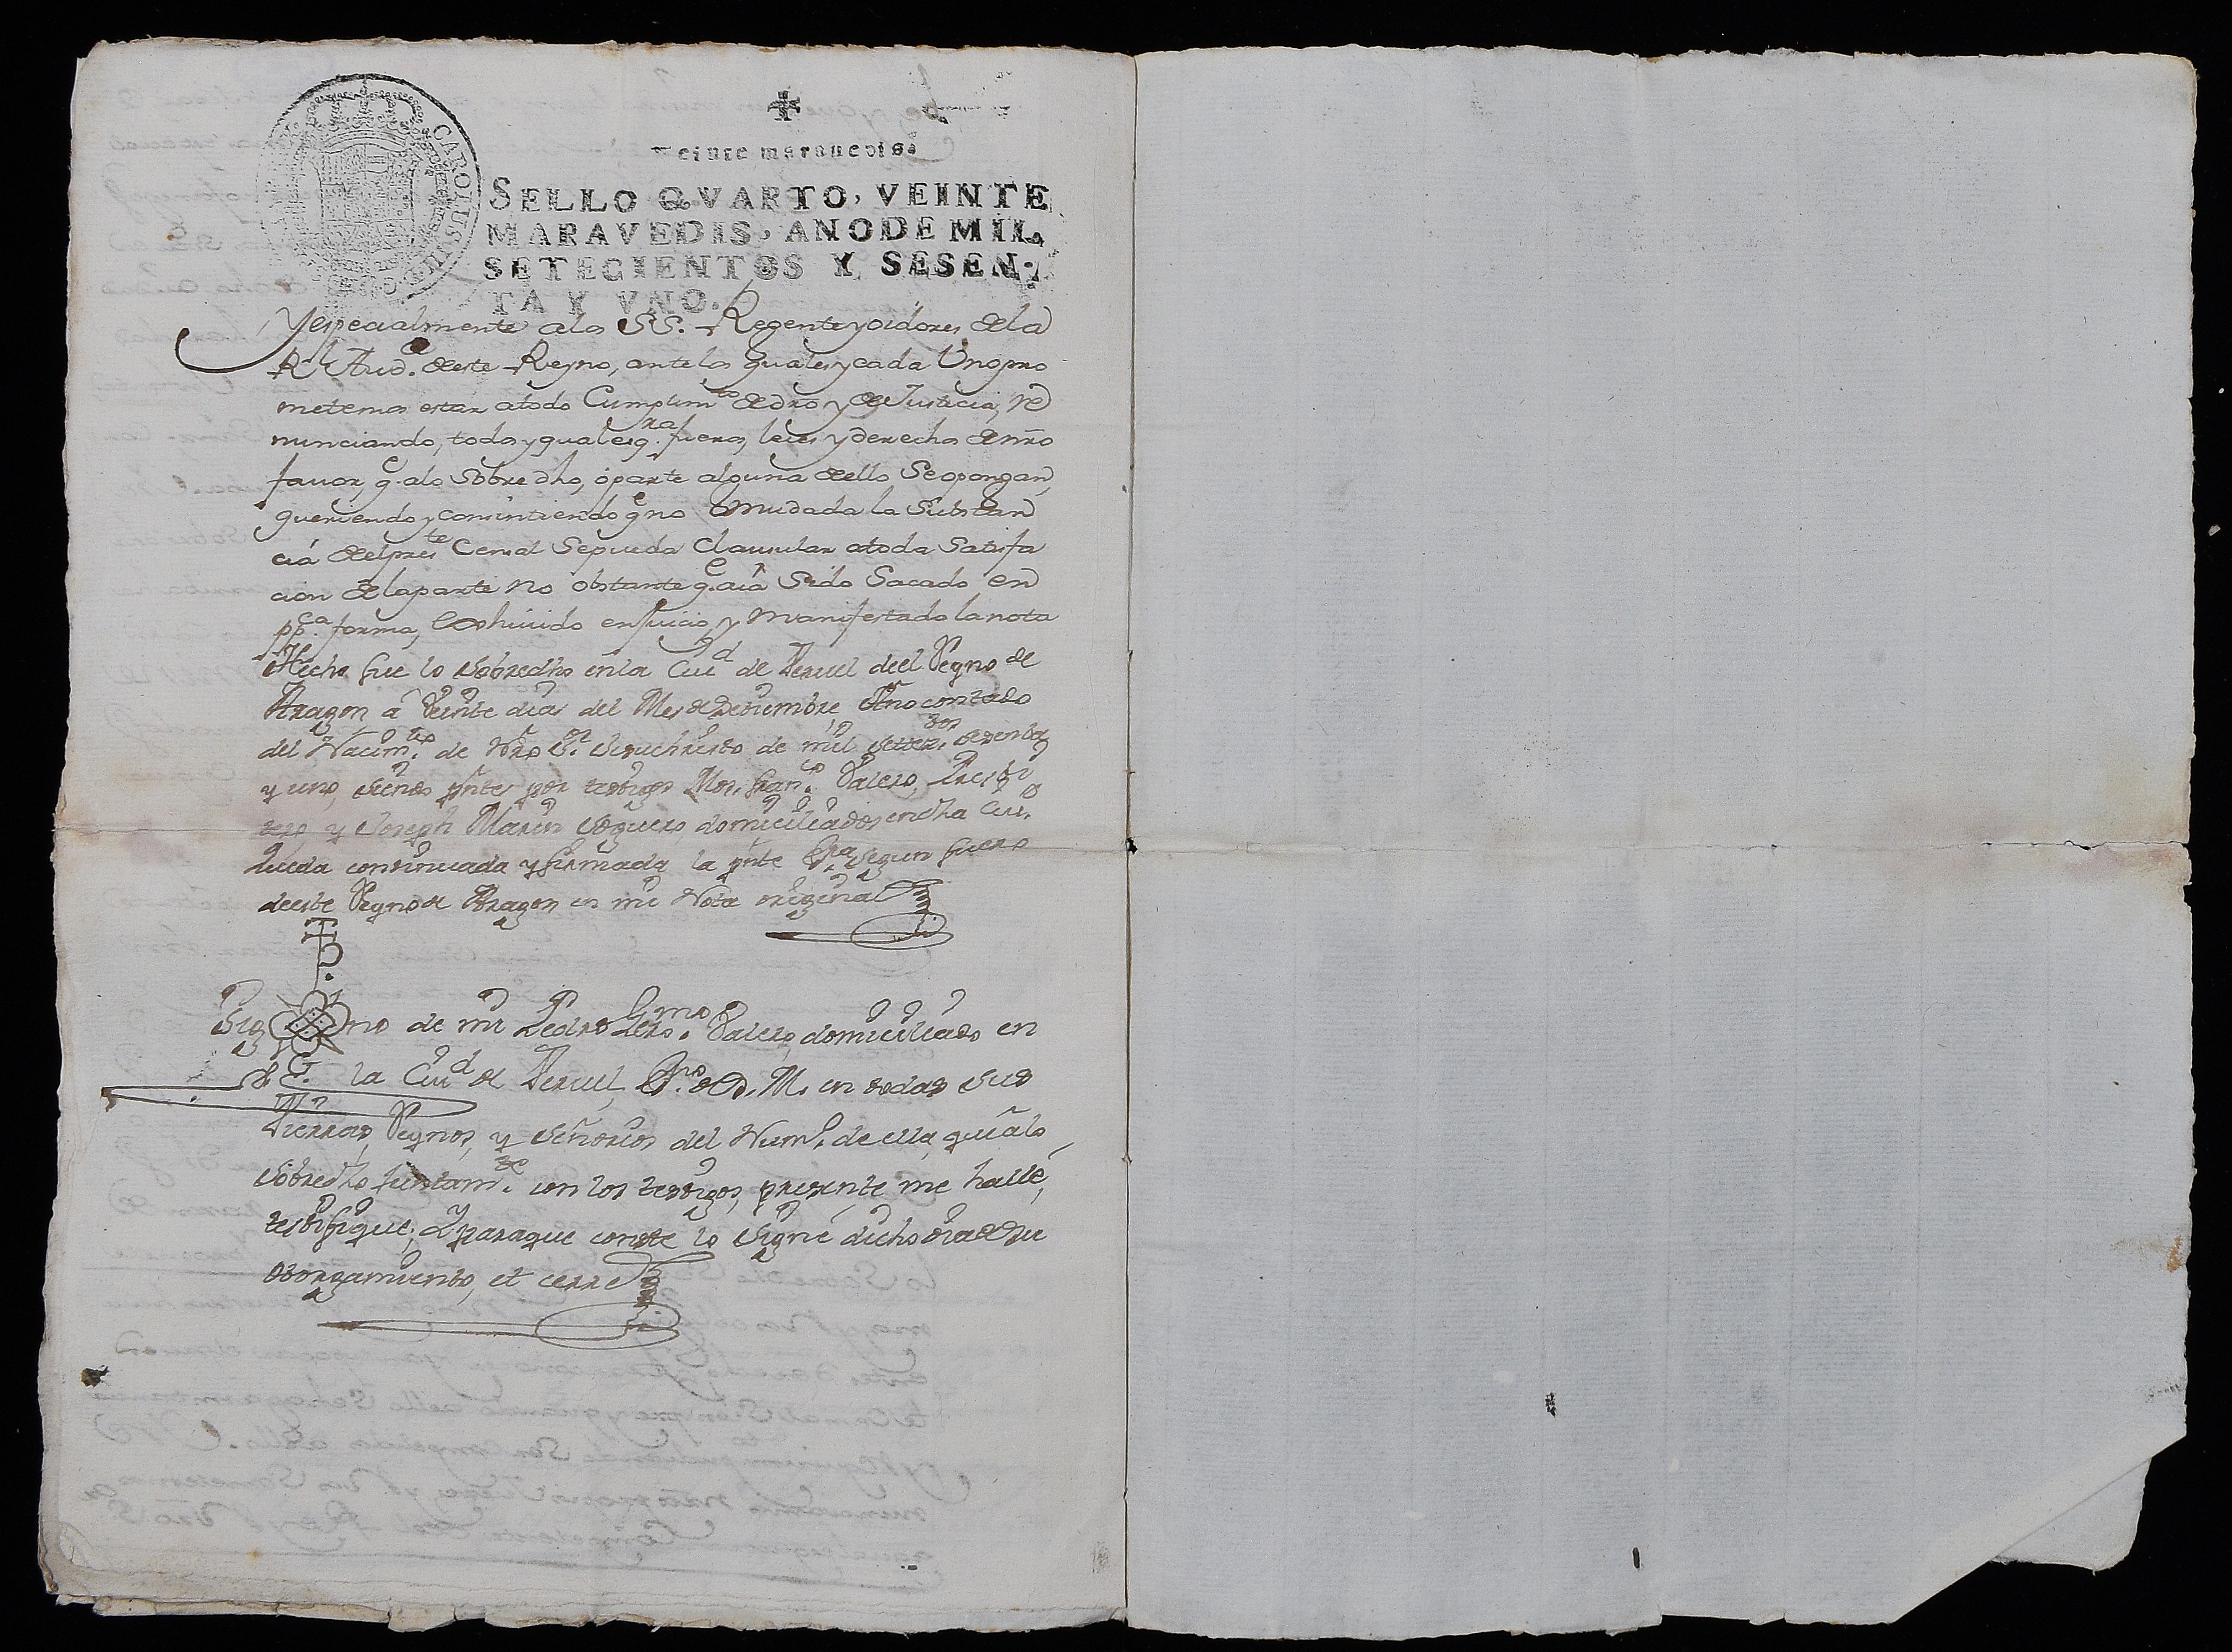 CAROLUS
Veinte marauedis.
SELLO QVARTO, VEINTE
MARAVEDIS, ANO DE MIL
SETECIENTOS Y SESEN-
TA Y VNO.
Yespecialmente alos SS. Regente yoidores dela
Rl. Aud.a deeste Reyno, antelos quales ycada Uno pro
metemos estar atodo Cumplimto dedro y de Justicia, re
nunciando, todos y qualesqra fueros, leies y derechos de nro
fauor, qe alo Sobredho, óparte alguna dello Seopongan,
queriendo y consintiendo qe no mudada la Substan
cia delpreste Censal Sepueda Clausular atoda Satisfa
cion delaparte no obstante qe aia Sido Sacado en
ppca forma, Exhiuido enJuicio, y manifestado la nota
Hecho fue lo sobredho en la Ciud de Teruel deel Reyno de
Aragon á Veinte dias del Mes de Deziembre Año contado
del Nacimto de Nro Sr Jesuchristo de mil Setteztos sesenta
y uno, siendo pntes por testigos Mos. Franco Valero, Presbi
tero y Joseph Marin Soguero domiciliados en dha Ciud
Queda continuada y firmada la pnte Essra segun fuero
deeste Reyno de Aragon en mi Nota original
Sig no de mi Pedro Germo Valero, domiciliado en
la Ciud de Teruel, Essno de S. M. en todas sus
Tierras, Reynos, y Señorios del Numo de ella, qui alo
sobredho Juntamte con los testigos, presente me hallé,
testifique; Y paraque conste lo Signé dicho dia de su
otorgamiento, et cerre